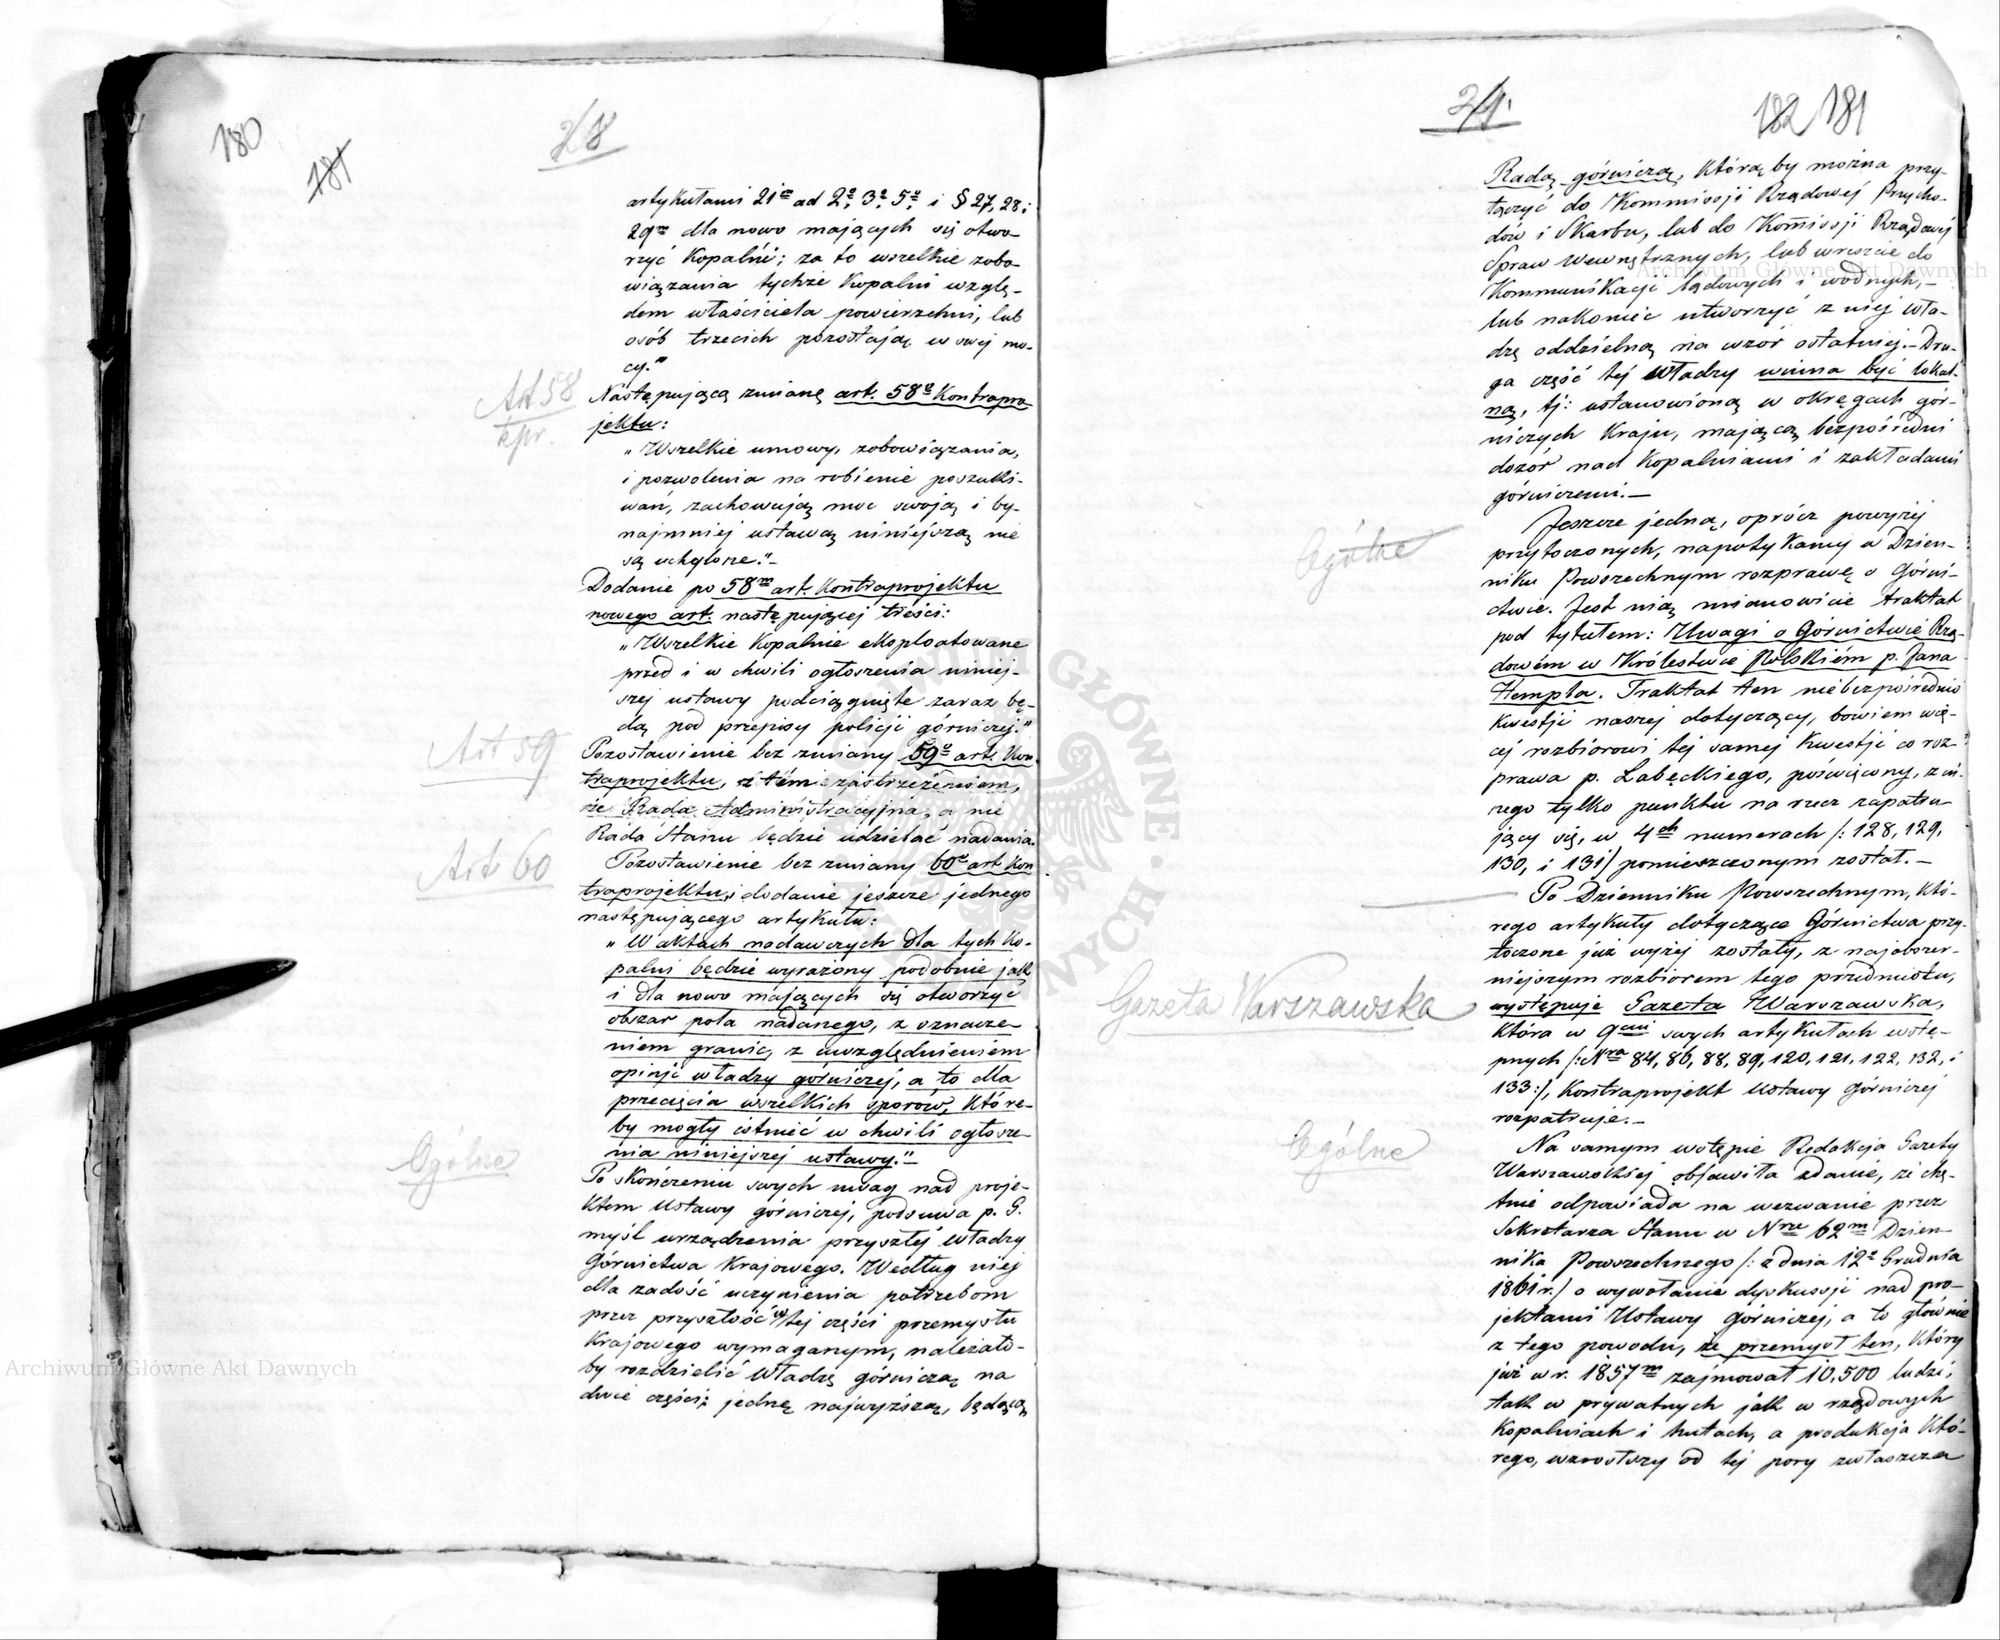 180
181
28
artykułami 21ᵐ ad 2º, 3º, 5º i § 27, 28 i
29ᵐ dla nowo mających się otwo-
rzyć Kopalń; za to wszelkie zobo-
wiązania tychże Kopalń wzglę-
dem właściciela powierzchni, lub
osób trzecich pozostają w swej mo-
cy."
Art 58
kpr.
Następującą zmianę art. 58º Kontrapro
jektu:
„Wszelkie umowy, zobowiązania,
i pozwolenia na robienie poszuki-
wań, zachowują moc swoją i by-
najmniej ustawą niniejszą nie
są uchylone."-
Dodanie po 58ᵐ art. Kontraprojektu
nowego art. następującej treści:
„Wszelkie Kopalnie eksploatowane
przed i w chwili ogłoszenia niniej-
szej ustawy podciągnięte zaraz bę-
dą pod przepisy policji górniczej."
Art 59
Pozostawienie bez zmiany 59º art. Kon-
traprojektu, z tém zastrzeżeniem,
że Rada Administracyjna, a nie
Rada Stanu będzie udzielać nadania.
Art 60
Pozostawienie bez zmiany 60º art Kon
traprojektu, i dodanie jeszcze jednego
następującego artykułu:
„W aktach nadawczych dla tych Ko-
palni będzie wyrażony podobnie jak
i dla nowo mających się otworzyć
obszar pola nadanego, z oznacze
niem granic, z uwzględnieniem
opinji władzy górniczej, a to dla
przecięcia wszelkich sporów, które-
by mogły istnieć w chwili ogłosze-
nia niniejszej ustawy."
Ogólne
Po skończeniu swych uwag nad proje-
ktem Ustawy górniczej, podsuwa p. G.
myśl urządzenia przyszłej władzy
Górnictwa Krajowego. Według niej
dla zadość uczynienia potrzebom
przez przyszłość w tej części przemysłu
Krajowego wymaganym, należało-
by rozdzielić Władzę górniczą na
dwie części; jednę najwyższą, będącą
29.
182 181
Radą górniczą, którą by można przy-
łączyć do Kommissji Rządowej Przycho-
dów i Skarbu, lub do Komissji Rządowej
Spraw Wewnętrznych, lub wreszcie do
Kommunikacji lądowych i wodnych,-
lub nakoniec utworzyć z niej wła-
dzę oddzielną na wzór ostatniej.- Dru-
ga część tej Władzy winna być lokal-
ną, tj: ustanowioną w okręgach gór-
niczych Kraju, mającą bezpośredni
dozór nad Kopalniami i zakładami
górniczemi.-
Ogólne
Jeszcze jedną, oprócz powyżej
przytoczonych, napotykamy w Dzien-
niku Powszechnym rozprawę o Górni-
ctwie. Jest nią mianowicie traktat
pod tytułem: Uwagi o Górnictwie Rzą-
dowém w Królestwie Polskiém p. Jana
Hempla. Traktat ten niebezpośrednio
kwestji naszej dotyczący, bowiem wię-
cej rozbiorowi tej samej Kwestji co roz-
prawa p. Łabęckiego, poświęcony, z in-
nego tylko punktu na rzecz zapatru
jący się, w 4ᶜʰ numerach /: 128, 129,
130, i 131/ pomieszczonym został.-
Po Dzienniku Powszechnym, Któ-
rego artykuły dotyczące Górnictwa przy-
toczone już wyżej zostały, z najobszer-
niejszym rozbiorem tego przedmiotu,
Gazeta Warszawska
występuje Gazeta Warszawska,
która w 9ᶜⁱᵘ swych artykułach wstę-
pnych /: Nʳᵃ 84, 86, 88, 89, 120, 121, 122, 132, i
133:/, Kontraprojekt Ustawy górniczej
rozpatruje.-
Ogólne
Na samym wstępie Redakcja Gazety
Warszawskiej objawiła zdanie, że chę-
tnie odpowiada na wezwanie przez
Sekretarza Stanu w Nʳᵉ 62ᵐ Dzien
nika Powszechnego /: z dnia 12º Grudnia
1861 r./ o wywołanie dyskussji nad pro-
jektami Ustawy górniczej, a to głównie
z tego powodu, że przemysł ten, Który
już w r. 1857ᵐ zajmował 10,500 ludzi,
tak w prywatnych jak w rządowych
Kopalniach i hutach, a produkcja Któ-
rego, wzrosłszy od tej pory zwłaszcza
Archiwum Główne Akt Dawnych
Archiwum Główne Akt Dawnych